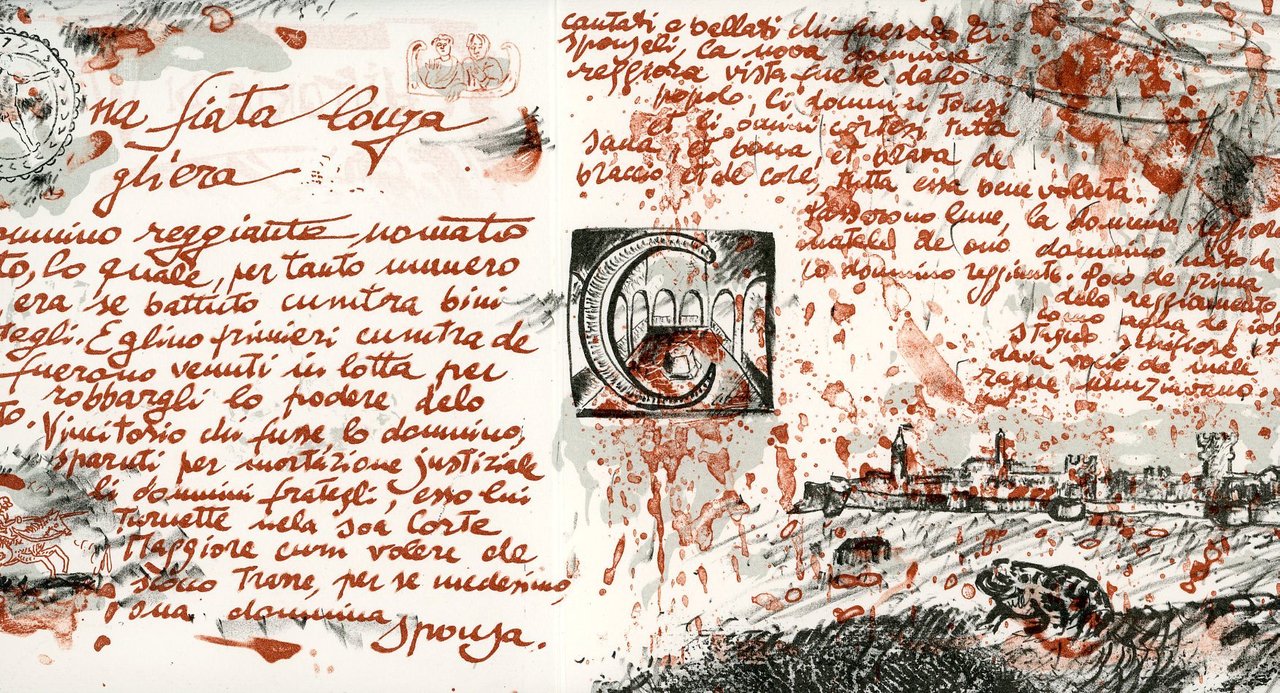 na fiata louga
gliera
ommino reggiante nomato
to, lo quale, per tanto numero
era se battuto cumtra bini
tegli. Eglino primieri cumtra de
fuerono venuti in lotta per
robbargli lo podere delo
to. Vincitorio chi fusse lo dommino,
sparuti per mortazione justiziale
li dommini frategli, esso lui
turnette nela soa Corte
Maggiore cum volere de
Trarre, per se medesimo,
sua dommina
spouza.
cantati e ballati chi fuerono li
spouseli, la nova dommina
reggiora vista fuette dalo
popolo, li dommini
et li omini cortesi tutta
sana, et bona, et brava de
braccio et de core, tutta essa bene voluta.
lune, la dommina reggiora
de uno dommino
lo dommino reggiente. Poco de prima
delo reggiamento
como acqua de
stagno
dava vocie de male
C